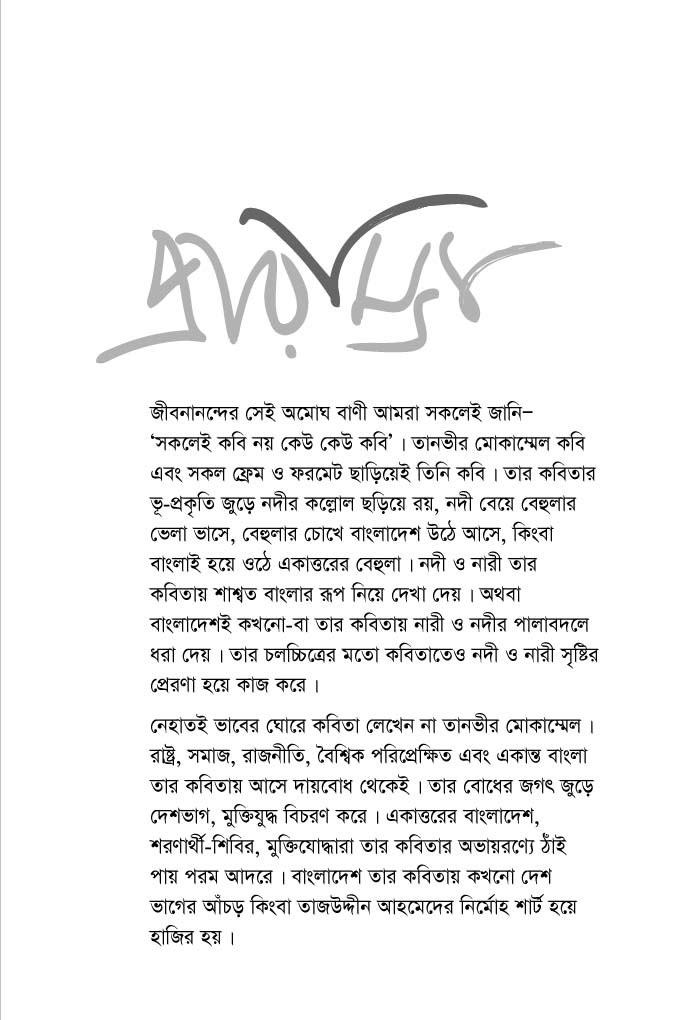 প্রারম্ভ
জীবনানন্দের সেই অমোঘ বাণী আমরা সকলেই জানি–
‘সকলেই কবি নয় কেউ কেউ কবি’ । তানভীর মোকাম্মেল কবি
এবং সকল ফ্রেম ও ফরমেট ছাড়িয়েই তিনি কবি । তার কবিতার
ভূ-প্রকৃতি জুড়ে নদীর কল্লোল ছড়িয়ে রয়, নদী বেয়ে বেহুলার
ভেলা ভাসে, বেহুলার চোখে বাংলাদেশ উঠে আসে, কিংবা
বাংলাই হয়ে ওঠে একাত্তরের বেহুলা । নদী ও নারী তার
কবিতায় শাশ্বত বাংলার রূপ নিয়ে দেখা দেয় । অথবা
বাংলাদেশই কখনো-বা তার কবিতায় নারী ও নদীর পালাবদলে
ধরা দেয় । তার চলচ্চিত্রের মতো কবিতাতেও নদী ও নারী সৃষ্টির
প্রেরণা হয়ে কাজ করে ।
নেহাতই ভাবের ঘোরে কবিতা লেখেন না তানভীর মোকাম্মেল ।
রাষ্ট্র, সমাজ, রাজনীতি, বৈশ্বিক পরিপ্রেক্ষিত এবং একান্ত বাংলা
তার কবিতায় আসে দায়বোধ থেকেই । তার বোধের জগৎ জুড়ে
দেশভাগ, মুক্তিযুদ্ধ বিচরণ করে । একাত্তরের বাংলাদেশ,
শরণার্থী-শিবির, মুক্তিযোদ্ধারা তার কবিতার অভায়রণ্যে ঠাঁই
পায় পরম আদরে । বাংলাদেশ তার কবিতায় কখনো দেশ
ভাগের আঁচড় কিংবা তাজউদ্দীন আহমেদের নির্মোহ শার্ট হয়ে
হাজির হয় ।